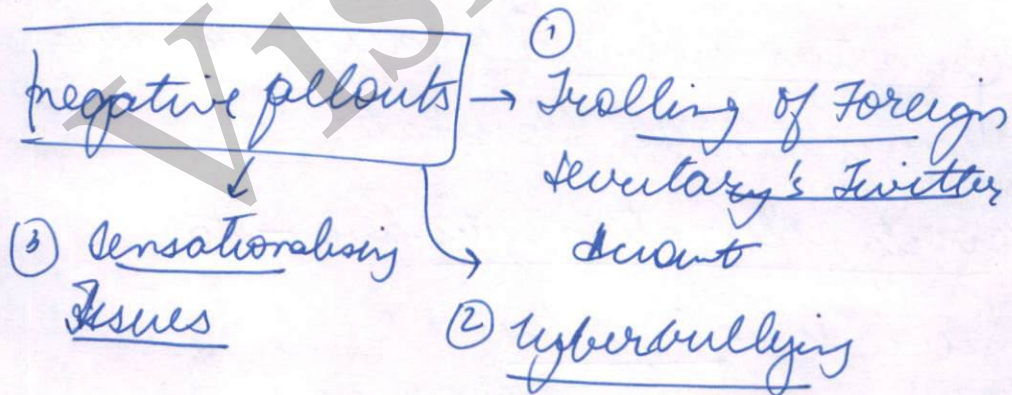 ①
negative fallouts → Trolling of Foreign
Secretary's Twitter
Account
③ Sensationalising
Issues
② Cyberbullying